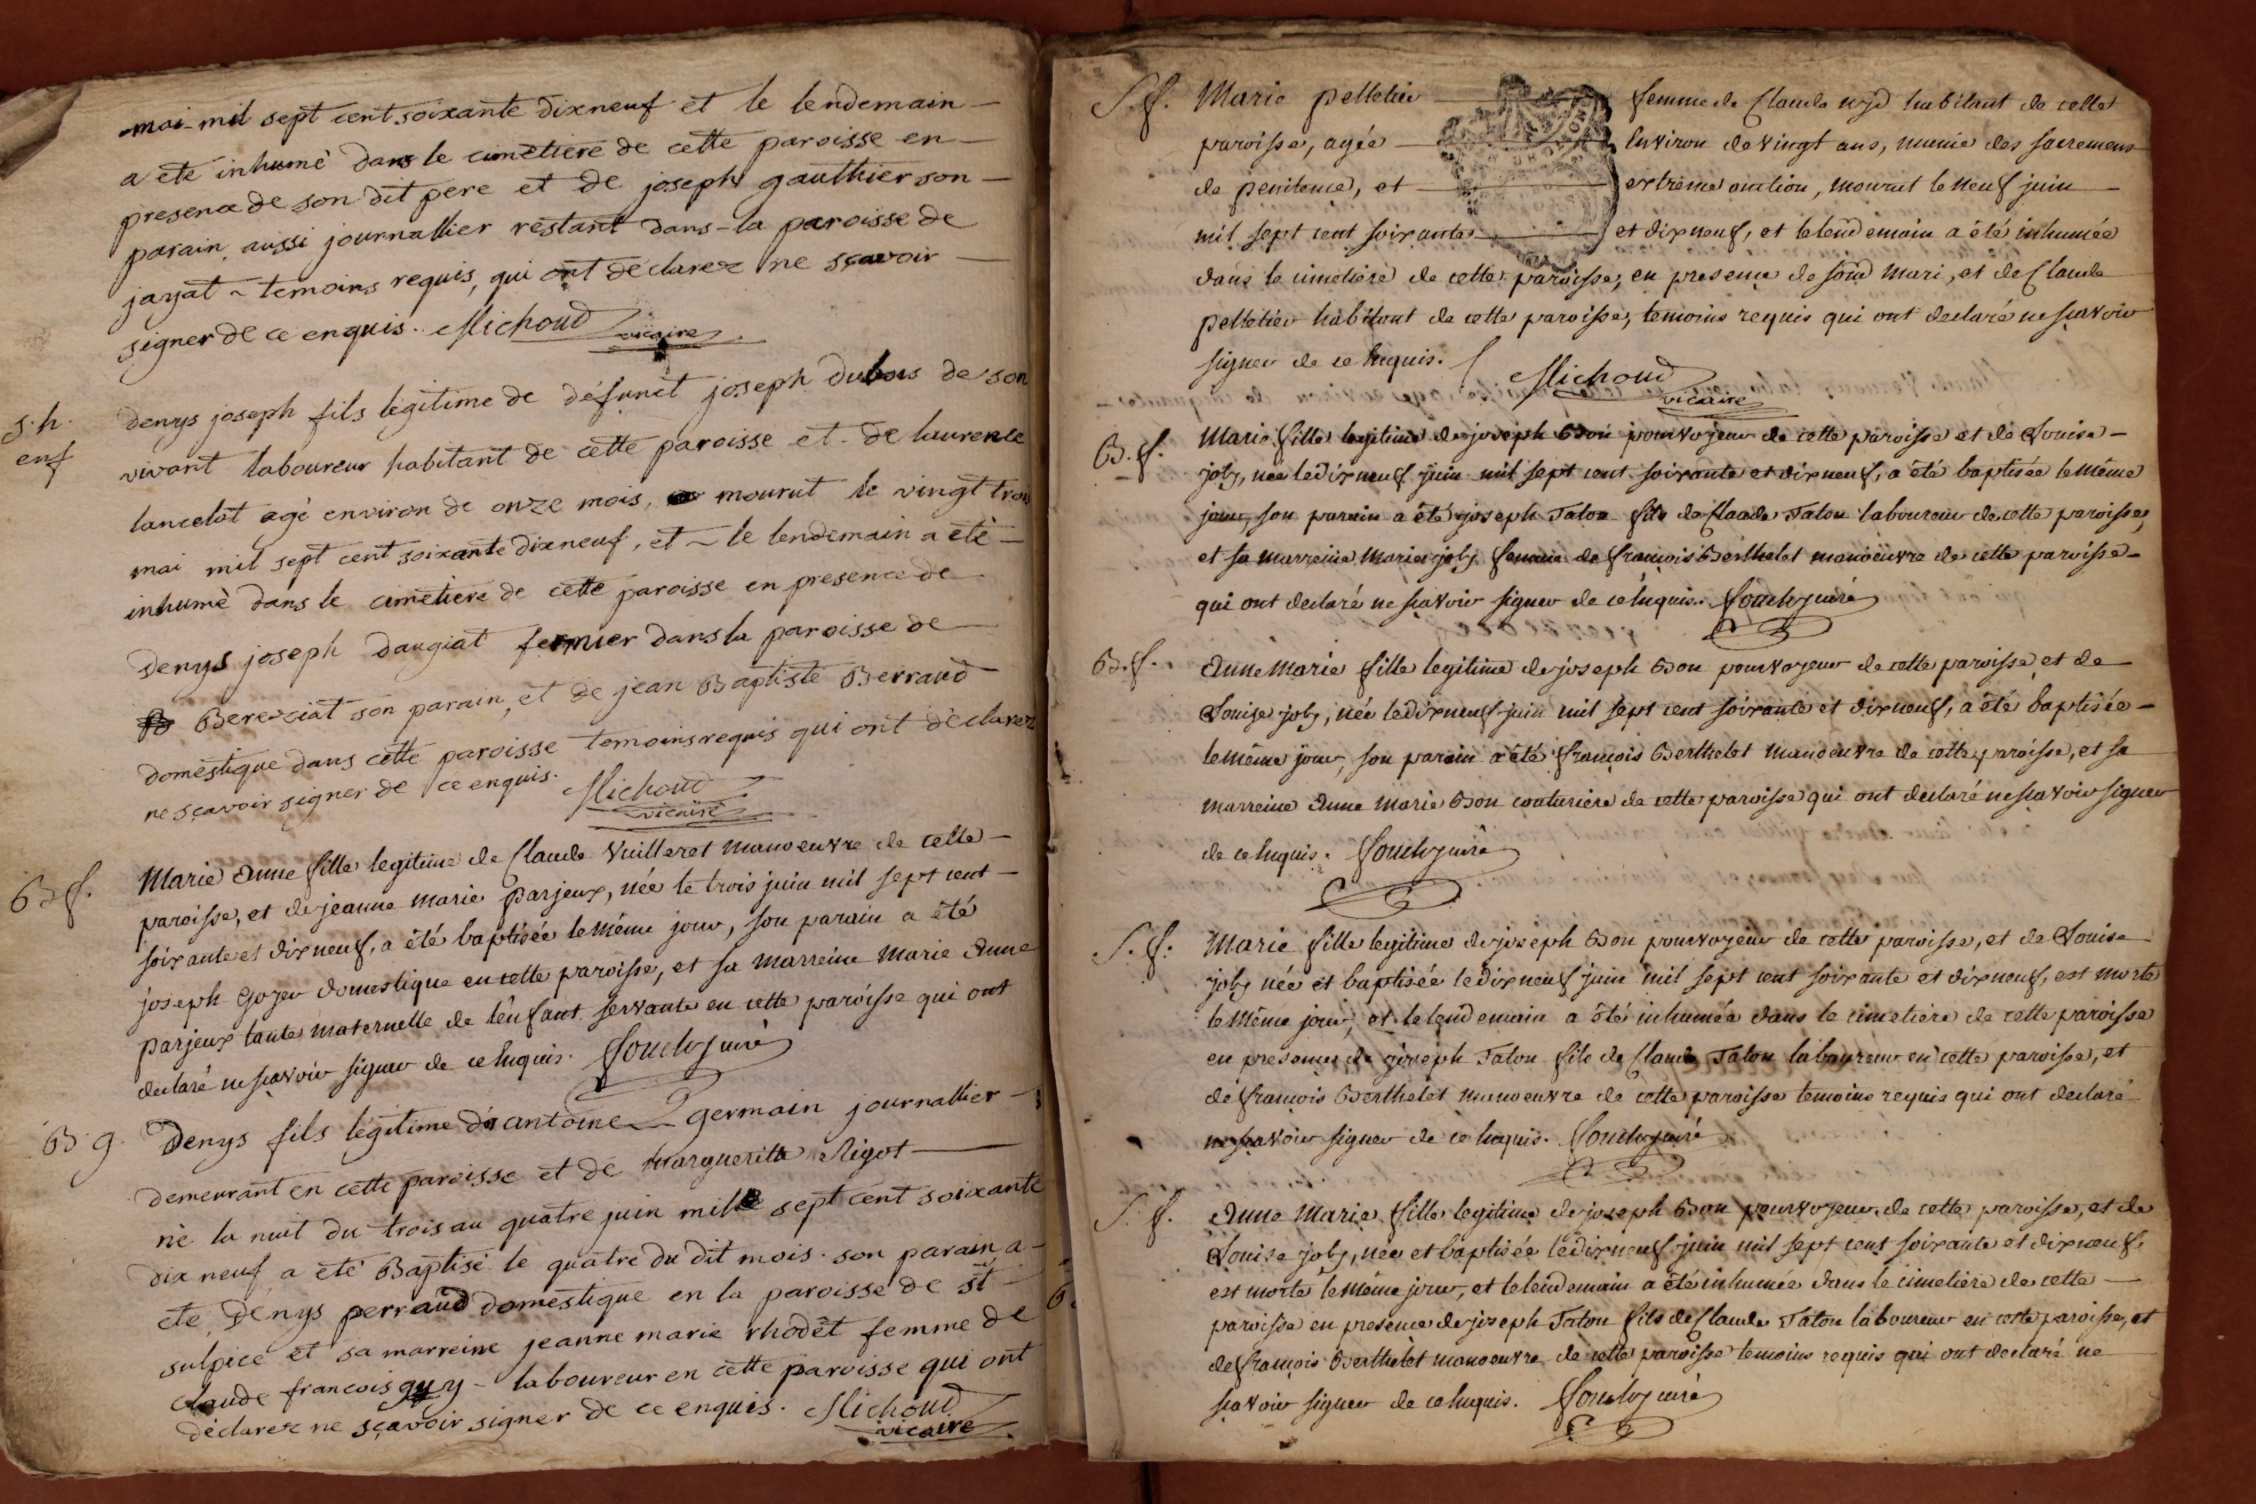 mai mil sept cent soixante dixneuf et le lendemain
a eté inhumè dans le cimetiere de cette paroisse en
presence de son dit pere et de joseph gauthier son
parain, aussi journallier restant dans la paroisse de
jayat temoins requis, qui ont declarez ne sçavoir
signer de ce enquis. Michoud
vicaire
s. h.
enf
denys joseph fils legitime de défunct joseph dubois de son
vivant laboureur habitant de cette paroisse et de laurence
lancelot agé environ de onze mois, mourut le vingt trois
mai mil sept cent soixante dixneuf, et le lendemain a eté
inhumè dans le cimetiere de cette paroisse en presence de
denys joseph daugiat fermier dans la paroisse de
Bereziat son parain, et de jean Baptiste Berraud
domestique dans cette paroisse temoins requis qui ont declarez
ne sçavoir signer de ce enquis. Michoud
vicaire
B f.
Marie Anne fille legitime de Claude Vuilleret manoeuvre de cette
paroisse, et de jeanne marie parjeux, née le trois juin mil sept cent
soixante et dix neuf, a été baptisée le même jour, son parain a été
joseph Goyer domestique en cette paroisse, et sa marreine Marie Anne
parjeux tante maternelle de l'enfant servante en cette paroisse qui ont
declaré ne sçavoir signer de ce enquis.
B g.
Denys fils légitime d'antoine germain journallier
demeurant en cette paroisse et de Marguerite Rigot
né la nuit du trois au quatre juin mille sept cent soixante
dix neuf a eté Baptisé le quatre du dit mois. son parain a
eté Denys perraud domestique en la paroisse de st
sulpice et sa marreine jeanne marie rhodet femme de
claude francois guy laboureur en cette paroisse qui ont
declarez ne sçavoir signer de ce enquis. Michoud
vicaire
S. f.
Marie pelletier femme de Claude habitant de cette
paroisse, agée environ de vingt ans, munie des sacremens
de penitence, et extrême onction, mourut le neuf juin
mil sept cent soixante et dix neuf, et le lendemain a été inhumée
dans le cimetiere de cette paroisse, en presence de sond mari, et de Claude
pelletier habitant de cette paroisse, temoins requis qui ont declaré ne sçavoir
signer de ce enquis. Michoud
vicaire
B. f.
Marie fille legitime de joseph Bon pourvoyeur de cette paroisse et de Louise
joly, née le dix neuf juin mil sept cent soixante et dix neuf, a été baptisée le même
jour, son parain a été joseph Talon fils de Claude Talon laboureur de cette paroisse,
et sa marreine Marie joly femme de françois Berthelet manoeuvre de cette paroisse
qui ont declaré ne sçavoir signer de ce enquis.
B. f.
Anne Marie fille legitime de joseph Bon pourvoyeur de cette paroisse et de
Louise joly, née le dix neuf juin mil sept cent soixante et dix neuf, a été baptisée
le même jour, son parain a été françois Berthelet manoeuvre de cette paroisse, et sa
marreine Anne Marie Bon couturiere de cette paroisse qui ont declaré ne sçavoir signer
de ce enquis.
S. f.
Marie fille legitime de joseph Bon pourvoyeur de cette paroisse, et de Louise
joly née et baptisée le dix neuf juin mil sept cent soixante et dix neuf, est morte
le même jour, et le lendemain a été inhumée dans le cimetiere de cette paroisse
en presence de joseph Talon fils de Claude Talon laboureur en cette paroisse, et
de françois Berthelet manoeuvre de cette paroisse temoins requis qui ont declaré
ne sçavoir signer de ce enquis.
S. f.
Anne Marie fille legitime de joseph Bon pourvoyeur de cette paroisse, et de
Louise joly, née et baptisée le dix neuf juin mil sept cent soixante et dix neuf,
est morte le même jour, et le lendemain a été inhumée dans le cimetiere de cette
paroisse en presence de joseph Talon fils de Claude Talon laboureur en cette paroisse, et
de françois Berthelet manoeuvre de cette paroisse temoins requis qui ont declaré ne
sçavoir signer de ce enquis.